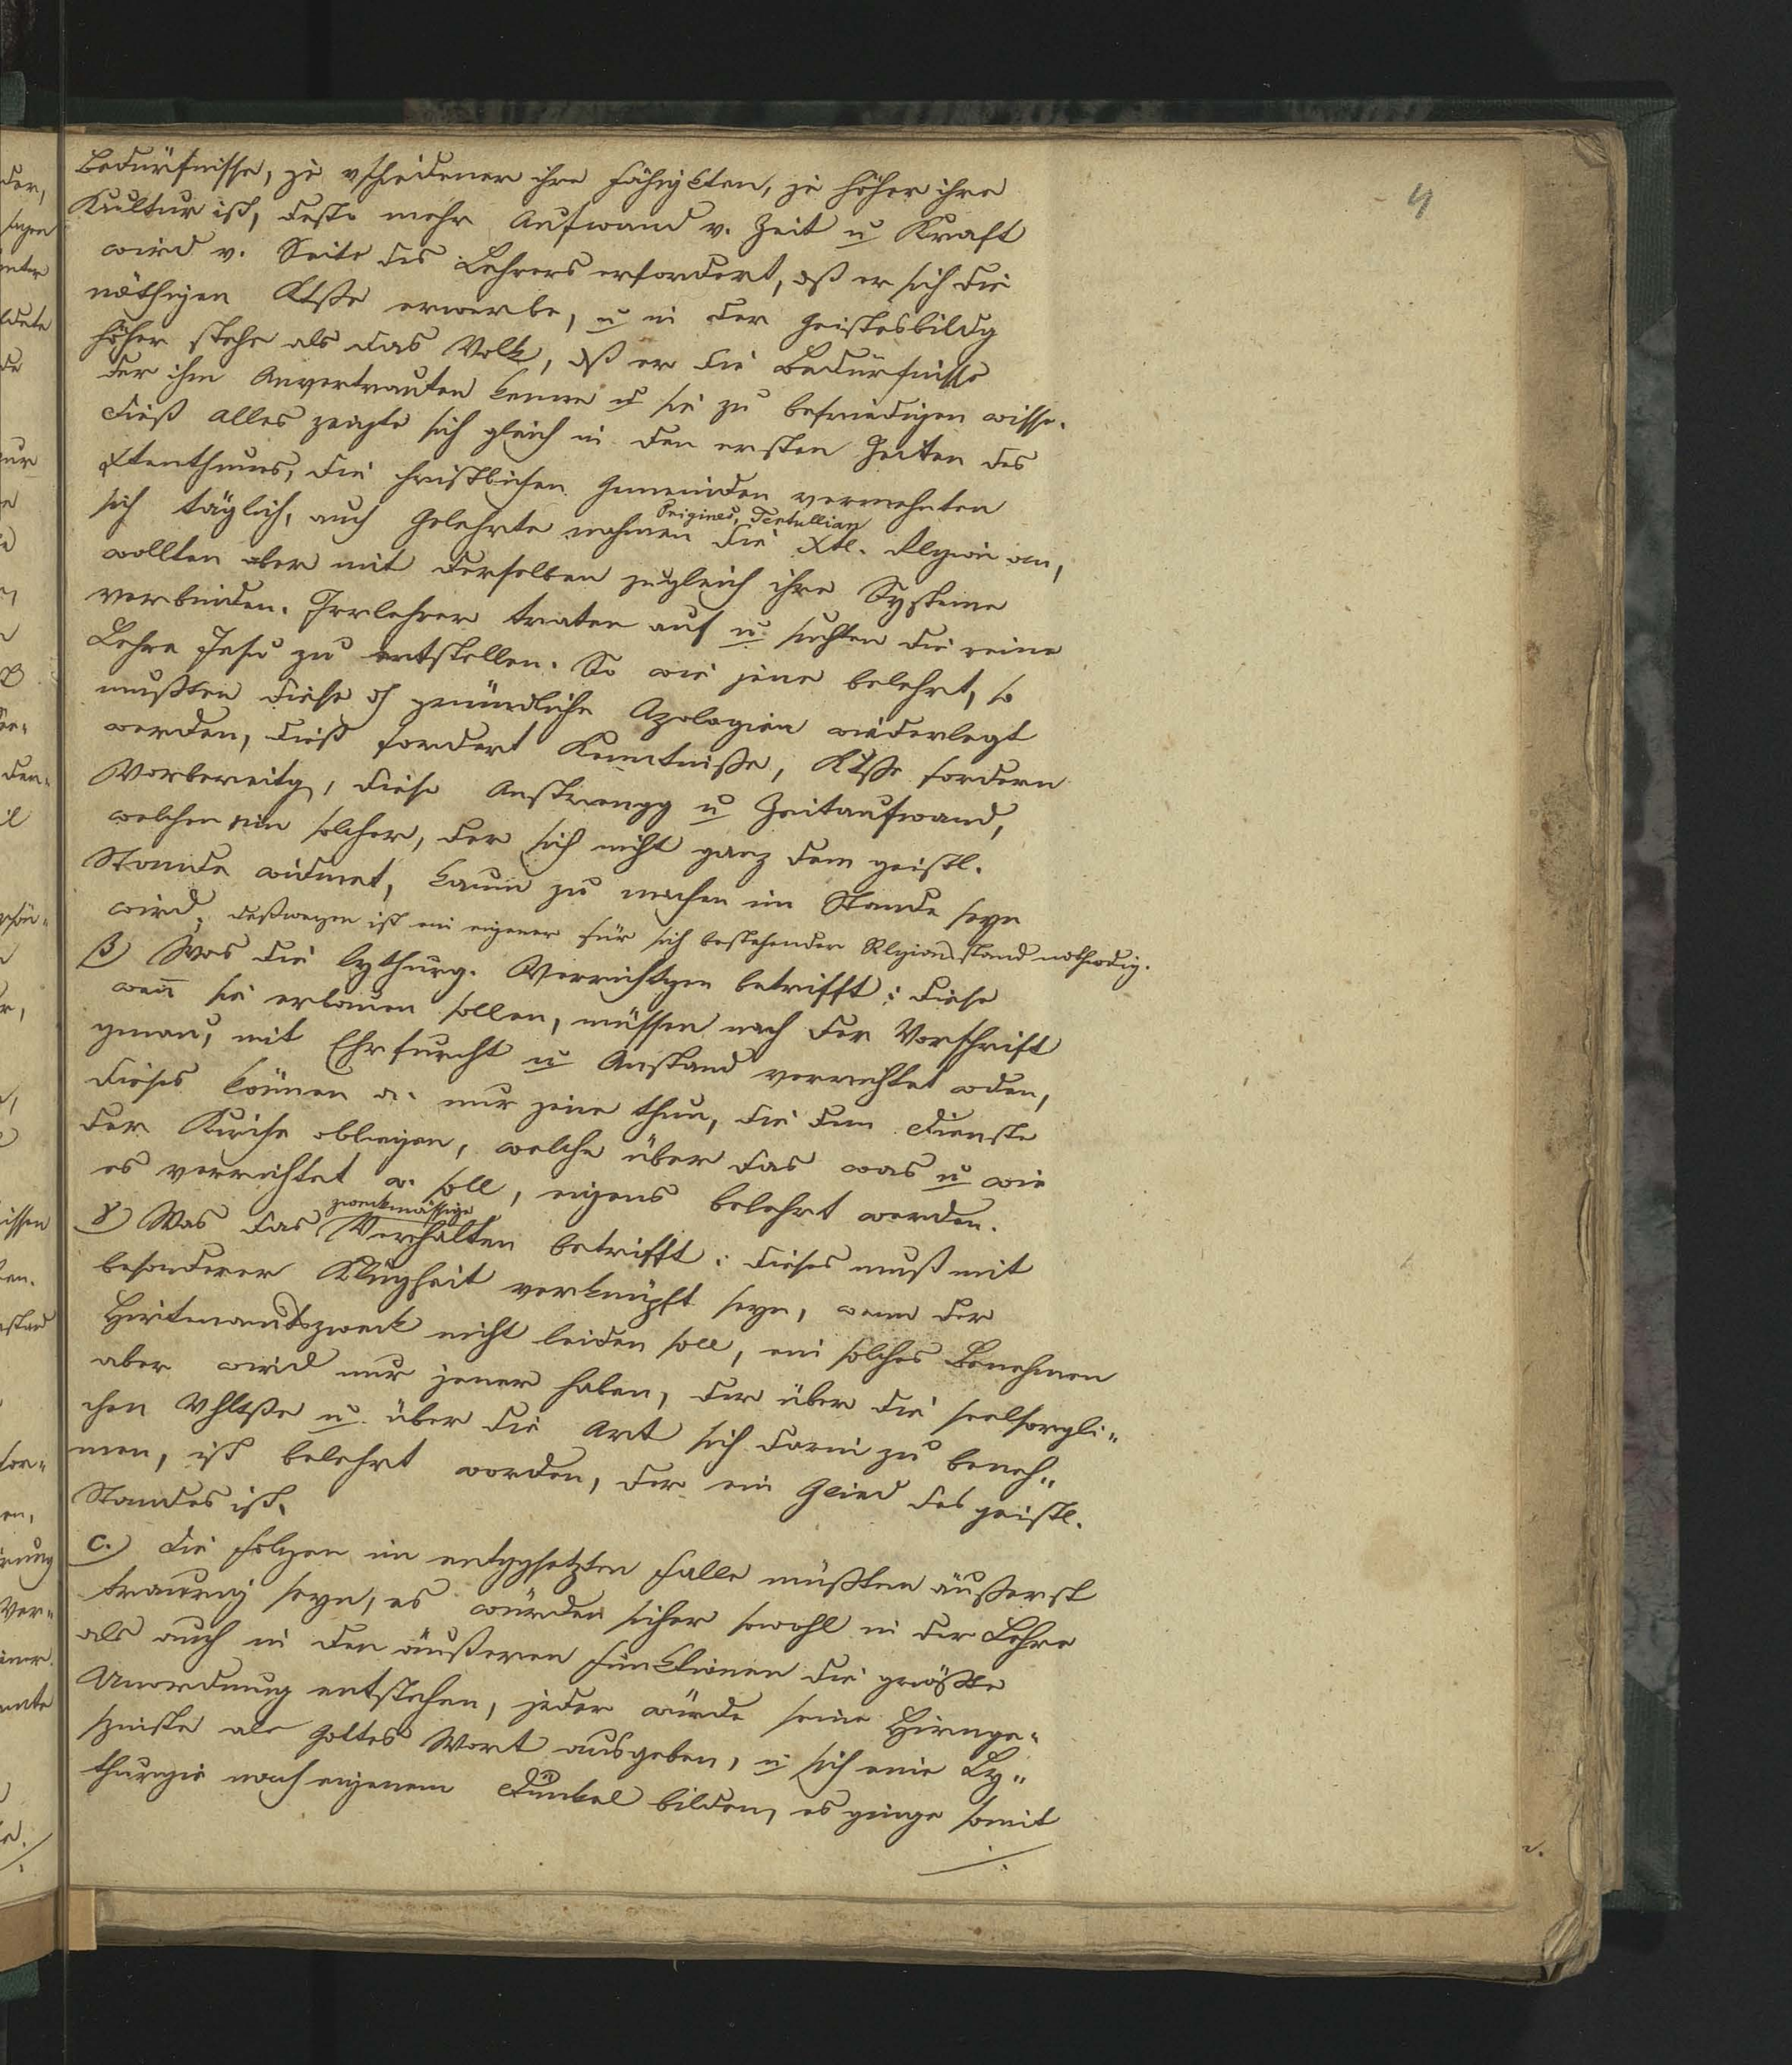 4
Bedürfnisse, je vschiedener ihre Fähigkten, je höher ihre
Kultur ist, desto mehr Aufwand v. Zeit u Kraft
wird v. Seite des Lehrers erfordert, dß er sich die
nöthigen Ktße erwerbe, u in der Geistesbildg
höher stehe als das Volk, dß er die Bedürfnisse
der ihm Anvertrauten kenne u sie zu befriedigen wisse.
Dieß alles zeigte sich gleich in den ersten Zeiten des
Xtenthums, die christlichen Gemeinden vermehrten
sich täglich, auch Gelehrte nahmen die Xtl. Rlgion an,
Origines, Tertullian
wollten aber mit derselben zugleich ihre Systeme
verbinden. Irrlehrer traten auf u. suchten die reine
Lehre Jesu zu entstellen. So wie jene belehrt, so
mußten diese dch gründliche Apologien wiederlegt
werden, dieß fordert Kenntniße, Ktße fordern
Vorbereitg, diese Anstrengg u Zeitaufwand,
welchen ein solcher, der sich nicht ganz dem geistl.
Stande widmet, kaum zu machen im Stande seyn
wird, deßwegen ist ein eigener für sich bestehender Rlgionsstand nothwdig.
β) Was die lythurg. Verrichtgen betrifft: diese
wen̄ sie erbauen sollen, müssen nach der Vorschrift
genau, mit Ehrfurcht u Anstand verrichtet wden,
dieses können a. nur jene thun, die dem Dienste
der Kirche obliegen, welche über das was u wie
es verrichtet w. soll, eigens belehrt werden.
γ) Was das zweckmässige Verhalten betrifft: dieses muß mit
besonderer Klugheit verknüpft seyn, wenn der
Hirtenamtszweck nicht leiden soll, ein solches Benehmen
aber wird nur jener haben, der über die seelsorgli„
chen Vhltße u. über die Art sich darin zu beneh„
men, ist belehrt worden, der ein Glied des geistl.
Standes ist.
c.) Die Folgen im entggsetzten Falle müßten äußerst
traurig seyn, es würden sicher sowohl in der Lehre
als auch in den äußeren Funktionen die größte
Unordnung entstehen, jeder würde seine Hirnge„
spinste als Gottes Wort ausgeben, u sich eine Ly„
thurgie nach eigenem Dünkel bilden, es ginge somit
./.